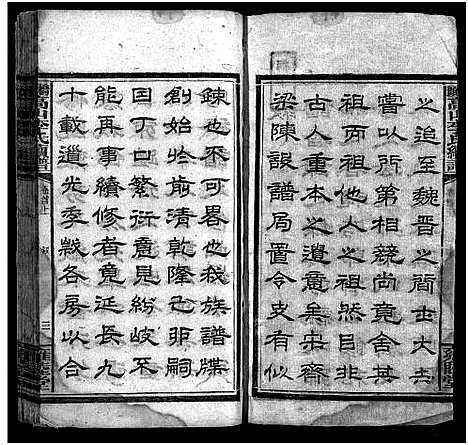 之追至魏晋之間士大夫
嘗以所第相競尚竟舍其
祖而祖他人之祖然目非
古人重本之遺意矣宋齊
梁陳設譜局置令史有似
諫也可畧也我族譜牒
創始於前清乾隆已非嗣
因丁口繁衍意見紛岐不
能再事續修者竟延長九
十載道光季穀各房以合
三